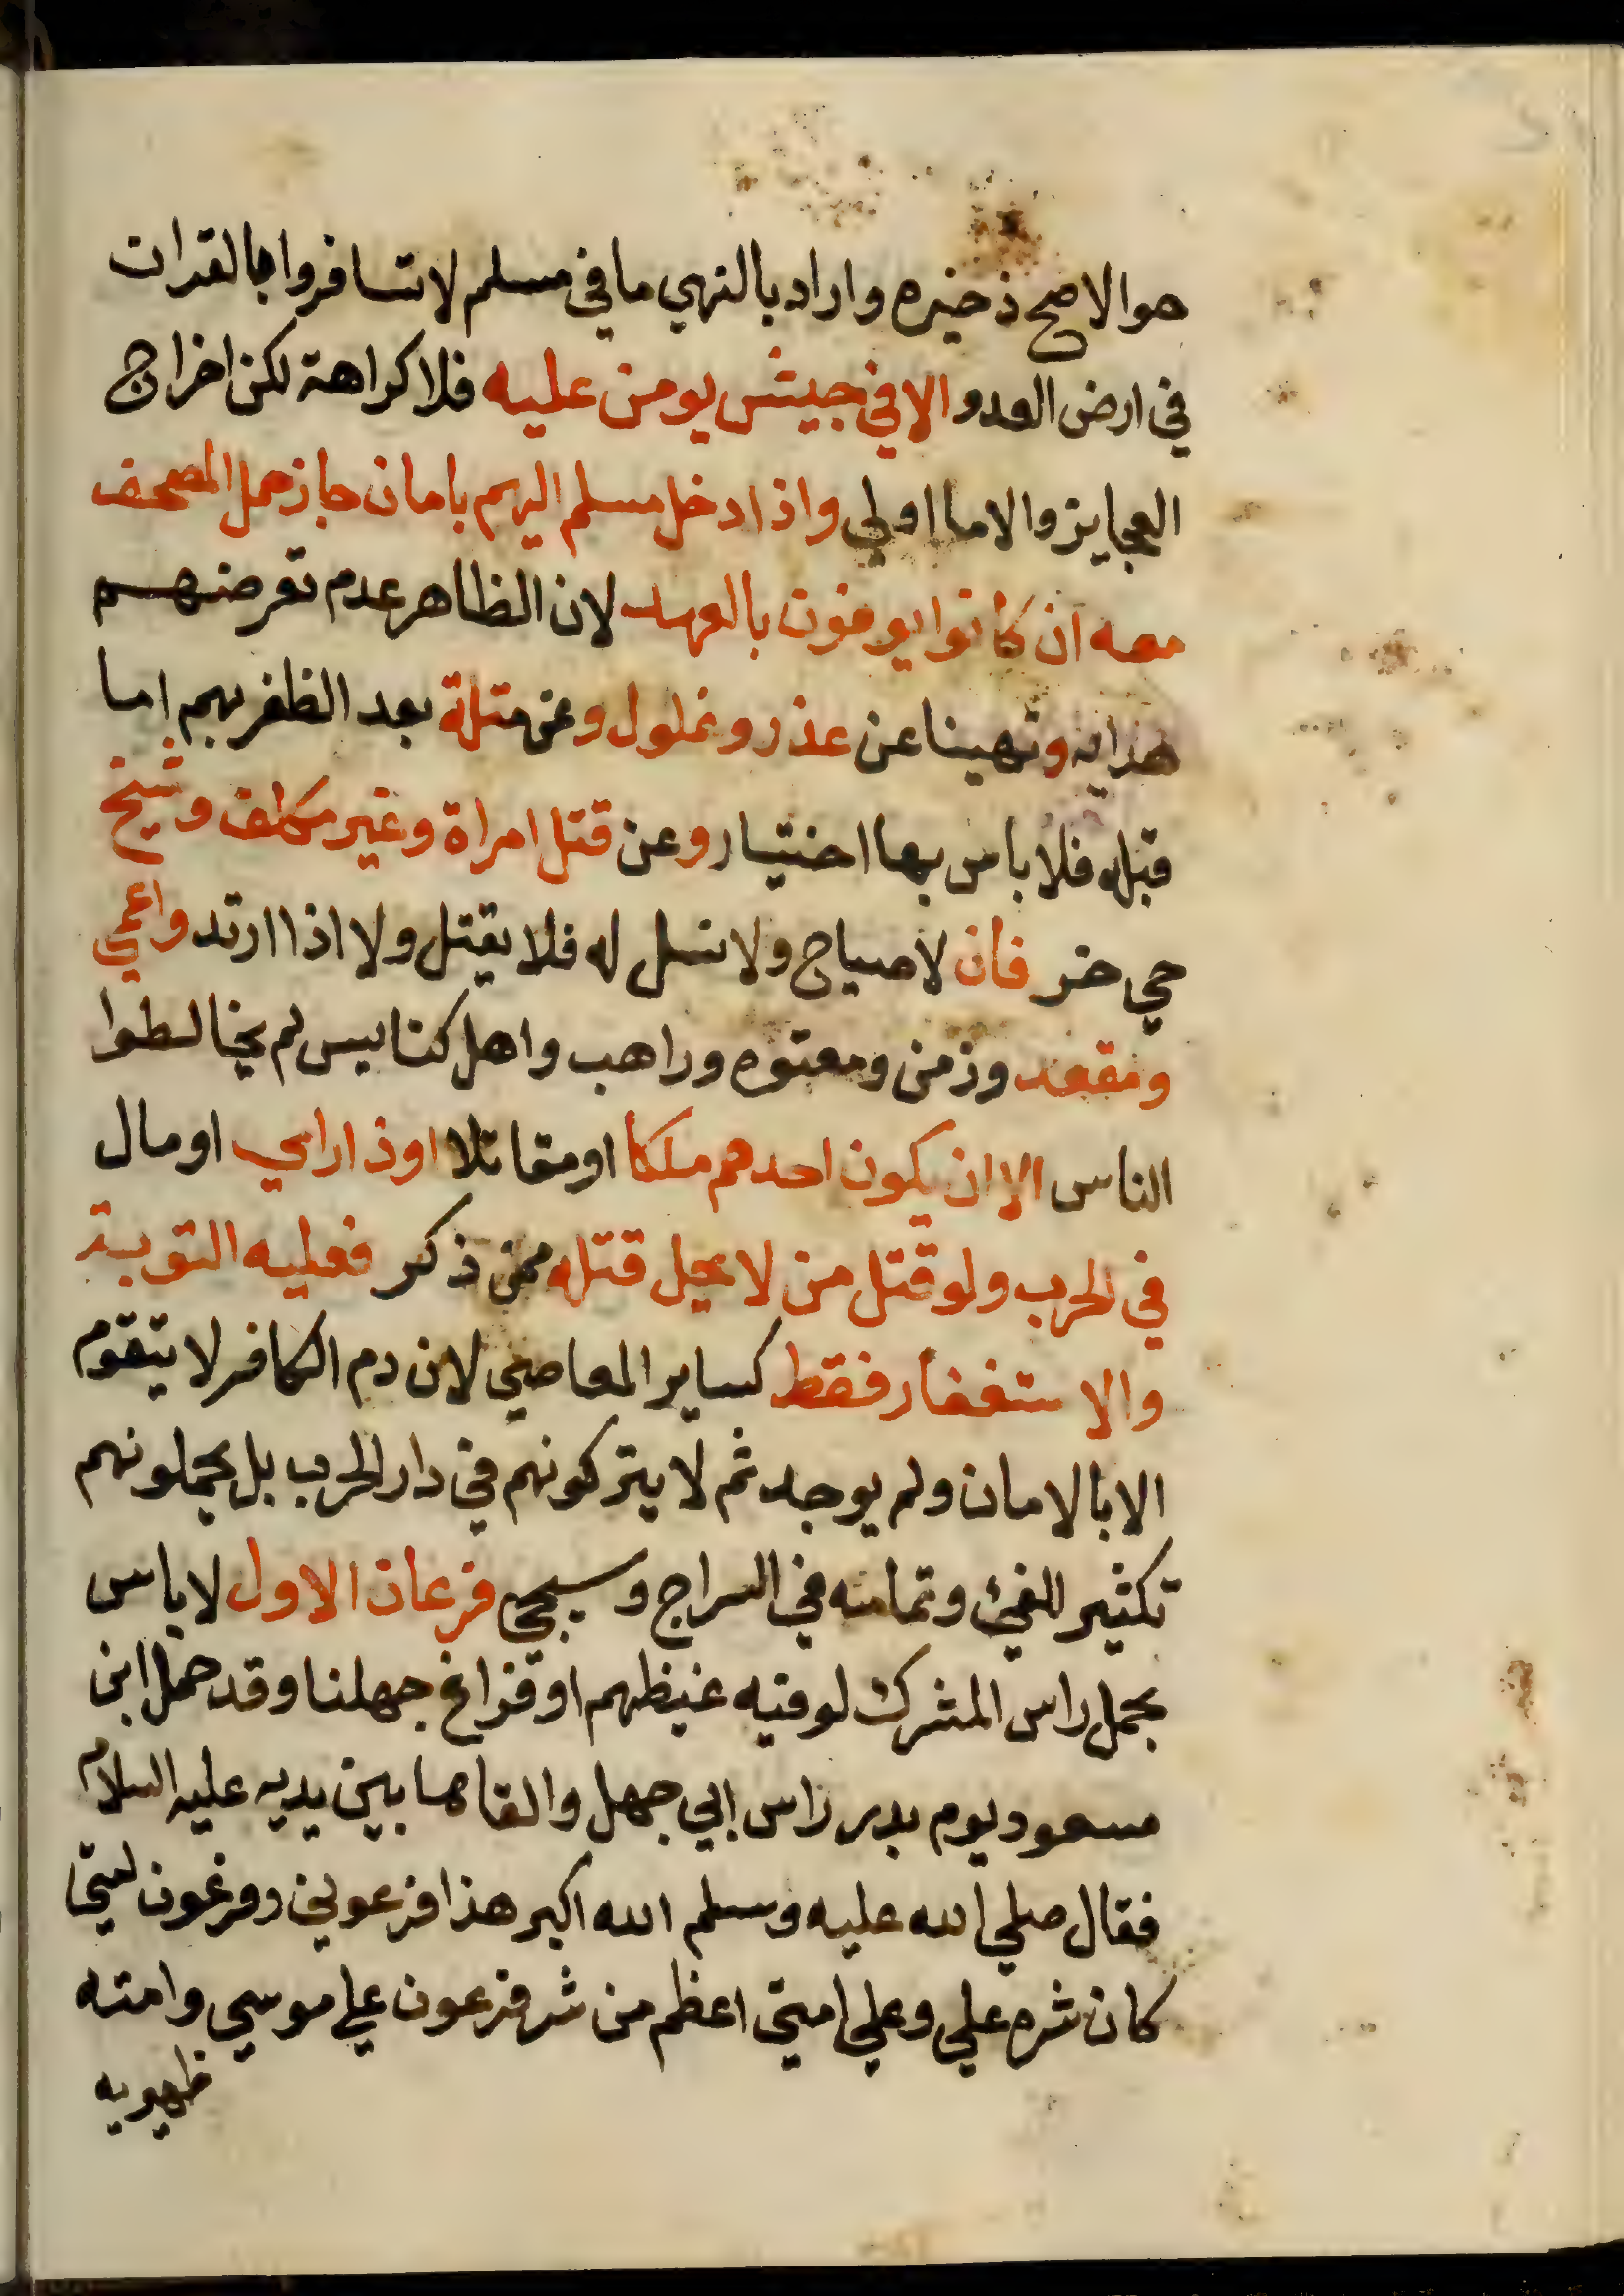 هو الاصح ذخيره واراد بالنهي ما في مسلم لا تسافروا بالقران
في ارض العدو الا في جيش يومن عليه فلا كراهة لكن اخراج
العجايز والاما اولي واذا دخل مسلم اليهم بامان جاز حمل المصحف
معه ان كانوا يوفون بالعهد لان الظاهر عدم تعرضهم
هدايه ونهينا عن عذر وغلول وعن مثلة بعد الظفر بهم اما
قبله فلا باس بها اختيار وعن قتل امراة وغير مكلف وشيخ
حي خر فان لا صياح ولا نسل له فلا يقتل ولا اذا ارتد واعمي
ومقعد وزمن ومعتوه وراهب واهل كنايس لم يخالطوا
الناس الا ان يكون احدهم ملكا او مقاتلا او ذا راي او مال
في الحرب ولو قتل من لا يحل قتله ممن ذكر فعليه التوبة
والاستغفار فقط كساير المعاصي لان دم الكافر لا يتقوم
الا بالامان ولم يوجد ثم لا يتركونهم في دار الحرب بل يحملونهم
تكثير للفيء وتمامه في السراج وسيجي فرعان الاول لا باس
بحمل راس المشرك لو فيه غيظهم او فراغ جهلنا وقد حمل ابن
مسعود يوم بدر راس ابي جهل والقاها بين يديه عليه السلام
فقال صلي الله عليه وسلم الله اكبر هذا فرعوني وفرعون امتي
كان شره علي وعلي امتي اعظم من شر فرعون علي موسي وامته
ظهيريه